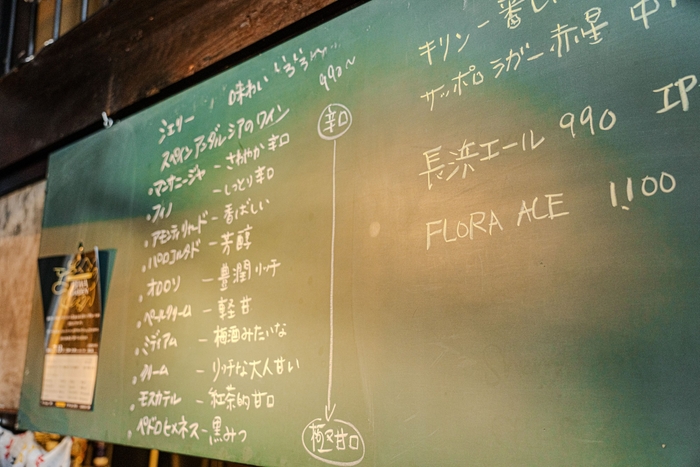 シェリー 味わいいろいろ〜 990〜
スペイン アンダルシアのワイン
・マンサニージャ - さわやか 辛口
・フィノ - しっとり辛口
・アモンティリャード - 香ばしい
・パロコルタド - 芳醇
・オロロソ - 豊潤リッチ
・ペールクリーム - 軽甘
・ミディアム - 梅酒みたいな
・クリーム - リッチな大人甘い
・モスカテル - 紅茶的甘口
・ペドロヒメネス - 黒みつ
辛口
極甘口
キリン - 一番し
サッポロ ラガー 赤星 中
長浜エール 990 IP
FLORA ACE 1,100